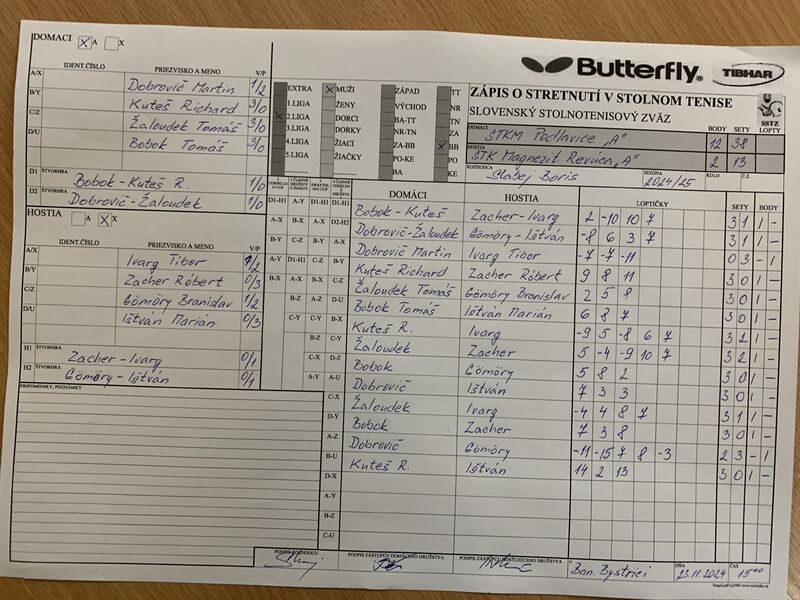 DOMACI X A X
IDENT.ČÍSLO PRIEZVISKO A MENO V/P
A/X Dobrovič Martin 1/2
B/Y Kuteš Richard 3/0
C/Z Žaloudek Tomáš 3/0
D/U Bobok Tomáš 3/0
D1 ŠTVORHRA
Bobok-Kuteš R. 1/0
D2 ŠTVORHRA
Dobrovič-Žaloudek 1/0
HOSTIA A X X
IDENT.ČÍSLO PRIEZVISKO A MENO V/P
A/X Ivarg Tibor 1/2
B/Y Zacher Róbert 0/3
C/Z Gömöry Branislav 1/2
D/U Ištván Marián 0/3
H1 ŠTVORHRA
Zacher-Ivarg 0/1
H2 ŠTVORHRA
Gömöry-Ištván 0/1
PRIPOMIENKY, POZNÁMKY
EXTRA X MUŽI ZÁPAD TT
1.LIGA ŽENY VÝCHOD NR
X 2.LIGA DORCI BA-TT TN
3.LIGA DORKY NR-TN ZA
4.LIGA ŽIACI ZA-BB X BB
5.LIGA ŽIAČKY PO-KE PO
BA KE
Butterfly TIBHAR
ZÁPIS O STRETNUTÍ V STOLNOM TENISE
SLOVENSKÝ STOLNOTENISOVÝ ZVÄZ
SSTZ
DOMÁCI STKM Podlavice „A" BODY SETY LOPTY
12 38
HOSTIA STK Magnezit Revúca „A" 2 13
ROZHODCA Slabej Boris SEZÓNA 2024/25 KOLO Č.
DOMÁCI HOSTIA LOPTIČKY SETY BODY
D1-H1 A-Y D1-H1 D1-H1 Bobok-Kuteš Zacher-Ivarg 2 -10 10 7 3 1 1 -
A-X B-X A-X D2-H2 Dobrovič-Žaloudek Gömöry-Ištván -8 6 3 7 3 1 1 -
B-Y C-Z B-Y A-X Dobrovič Martin Ivarg Tibor -7 -7 -11 0 3 - 1
A-Y D1-H1 C-Z B-Y Kuteš Richard Zacher Róbert 9 8 11 3 0 1 -
B-X A-X B-X C-Z Žaloudek Tomáš Gömöry Branislav 2 5 8 3 0 1 -
B-Z A-Z D-U Bobok Tomáš Ištván Marián 6 8 7 3 0 1 -
C-Y C-Y B-X Kuteš R. Ivarg -9 5 -8 6 7 3 2 1 -
B-Z C-Y Žaloudek Zacher 5 -4 -9 10 7 3 2 1 -
C-X D-Z Bobok Gömöry 5 8 2 3 0 1 -
A-Y A-U Dobrovič Ištván 7 3 3 3 0 1 -
C-X Žaloudek Ivarg -4 4 8 7 3 1 1 -
D-Y Bobok Zacher 7 3 8 3 0 1 -
A-Z Dobrovič Gömöry -11 -15 7 8 -3 2 3 - 1
B-U Kuteš R. Ištván 14 2 13 3 0 1 -
D-X
A-Y
B-Z
C-U
PODPIS ROZHODCU PODPIS ZÁSTUPCU DOMÁCEHO DRUŽSTVA PODPIS ZÁSTUPCU HOSŤUJÚCEHO DRUŽSTVA V Ban. Bystrici DŇA 23.11.2024 ČAS 15 00